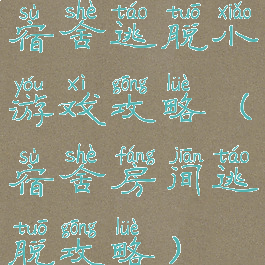 sù shè táo tuō xiǎo
宿舍逃脱小
yóu xì gōng lüè
游戏攻略（
sù shè fáng jiān táo
宿舍房间逃
tuō gōng lüè
脱攻略）